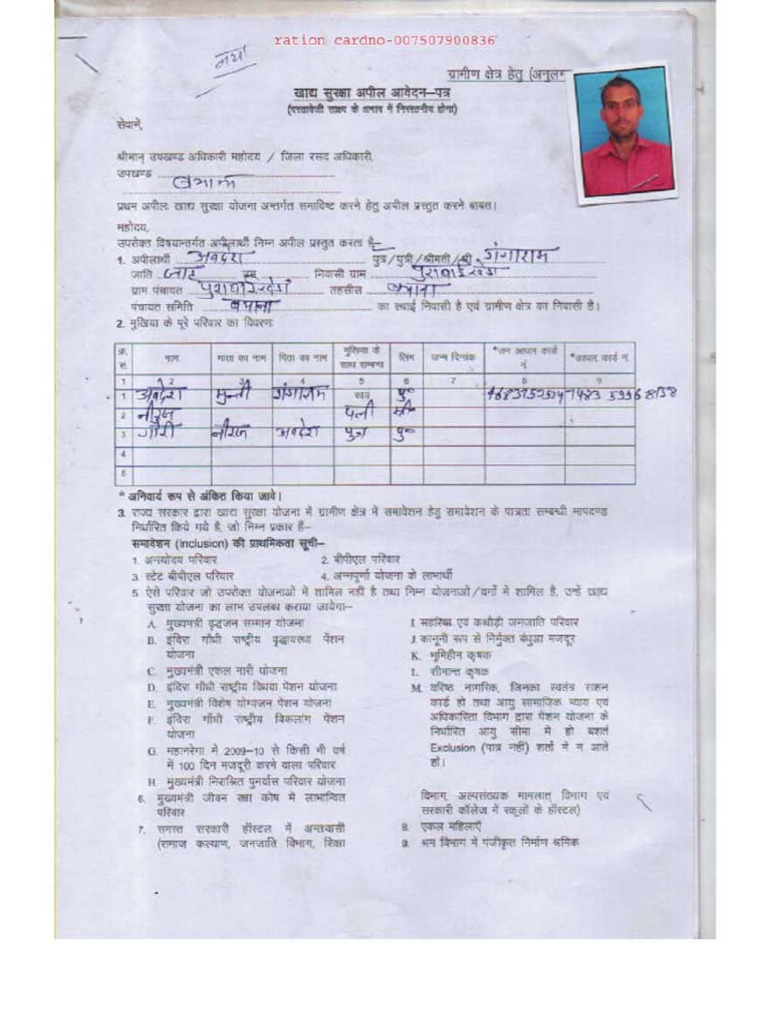 ration cardno-007507900836
नया
ग्रामीण क्षेत्र हेतु (अनुलग
खाद्य सुरक्षा अपील आवेदन–पत्र
(दस्तावेजी साक्ष्य के अभाव में निरस्तनीय होगा)
सेवामें,
श्रीमान् उपखण्ड अधिकारी महोदय / जिला रसद अधिकारी,
उपखण्ड बयाना
प्रथम अपीलः खाद्य सुरक्षा योजना अन्तर्गत समाविष्ट करने हेतु अपील प्रस्तुत करने बाबत।
महोदय,
उपरोक्त विषयान्तर्गत अपीलार्थी निम्न अपील प्रस्तुत करता है–
1. अपीलार्थी अवदेश पुत्र/पुत्री/श्रीमती/श्री गंगाराम
जाति जाटव निवासी ग्राम
ग्राम पंचायत तहसील बयाना
पंचायत समिति बयाना का स्थाई निवासी है एवं ग्रामीण क्षेत्र का निवासी है।
2. मुखिया के पूरे परिवार का विवरणः
क्र. सं. नाम माता का नाम पिता का नाम मुखिया से साथ सम्बन्ध लिंग जन्म दिनांक *जन आधार कार्ड नं. *आधार कार्ड नं.
1 2 3 4 5 6 7 8 9
1 अवदेश मुन्नी गंगाराम स्वयं पु०
2 नीरज पत्नी स्त्री
3 गौरी नीरज अवदेश पुत्र पु०
4
5
* अनिवार्य रूप से अंकित किया जावे।
3. राज्य सरकार द्वारा खाद्य सुरक्षा योजना में ग्रामीण क्षेत्र में समावेशन हेतु समावेशन के पात्रता सम्बन्धी मापदण्ड
निर्धारित किये गये है, जो निम्न प्रकार हैं–
समावेशन (Inclusion) की प्राथमिकता सूची–
1. अन्त्योदय परिवार 2. बीपीएल परिवार
3. स्टेट बीपीएल परिवार 4. अन्नपूर्णा योजना के लाभार्थी
5. ऐसे परिवार जो उपरोक्त योजनाओं में शामिल नही है तथा निम्न योजनाओं/वर्गो में शामिल है, उन्हें खाद्य
सुरक्षा योजना का लाभ उपलब्ध कराया जायेगा–
A. मुख्यमंत्री वृद्धजन सम्मान योजना
B. इंदिरा गाँधी राष्ट्रीय वृद्धावस्था पेंशन
योजना
C. मुख्यमंत्री एकल नारी योजना
D. इंदिरा गाँधी राष्ट्रीय विधवा पेंशन योजना
E. मुख्यमंत्री विशेष योग्यजन पेंशन योजना
F. इंदिरा गाँधी राष्ट्रीय विकलांग पेंशन
योजना
G. महानरेगा में 2009–10 से किसी भी वर्ष
में 100 दिन मजदूरी करने वाला परिवार
H. मुख्यमंत्री निराश्रित पुनर्वास परिवार योजना
6. मुख्यमंत्री जीवन रक्षा कोष में लाभान्वित
परिवार
7. समस्त सरकारी हॉस्टल में अन्तवासी
(समाज कल्याण, जनजाति विभाग, शिक्षा
I. सहरिया एवं कथौड़ी जनजाति परिवार
J. कानूनी रूप से निर्मुक्त बंधुआ मजदूर
K. भूमिहीन कृषक
L. सीमान्त कृषक
M. वरिष्ठ नागरिक, जिनका स्वतंत्र राशन
कार्ड हो तथा आयु सामाजिक न्याय एवं
अधिकारिता विभाग द्वारा पेंशन योजना के
निर्धारित आयु सीमा में हो बशर्ते
Exclusion (पात्र नहीं) शर्तो में न आते
हो।
विभाग, अल्पसंख्यक मामलात् विभाग एवं
सरकारी कॉलेज में स्कूलों के हॉस्टल)
8. एकल महिलाएँ
9. श्रम विभाग में पंजीकृत निर्माण श्रमिक